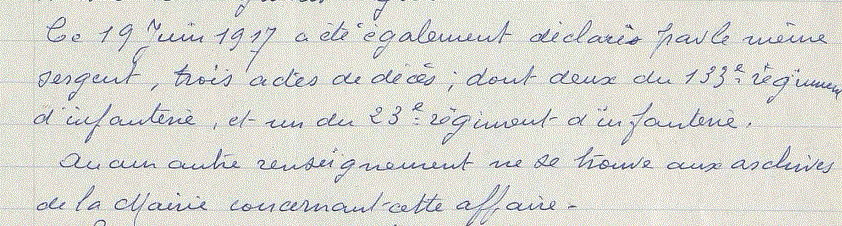 Ce 19 Juin 1917 a été également déclarés par le même
sergent, trois actes de décès; dont deux du 133e régiment
d'infanterie, et un du 23e régiment d'infanterie.
Aucun autre renseignement ne se trouve aux archives
de la Mairie concernant cette affaire -